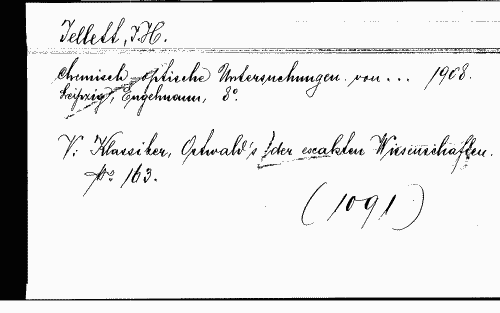 Jellett, J.H.
Chemisch-optische Untersuchungen von ... 1908.
Leipzig, Engelmann, 8°.
V: Klassiker, Ostwald's der exakten Wissenschaften.
No 163.
(1091)